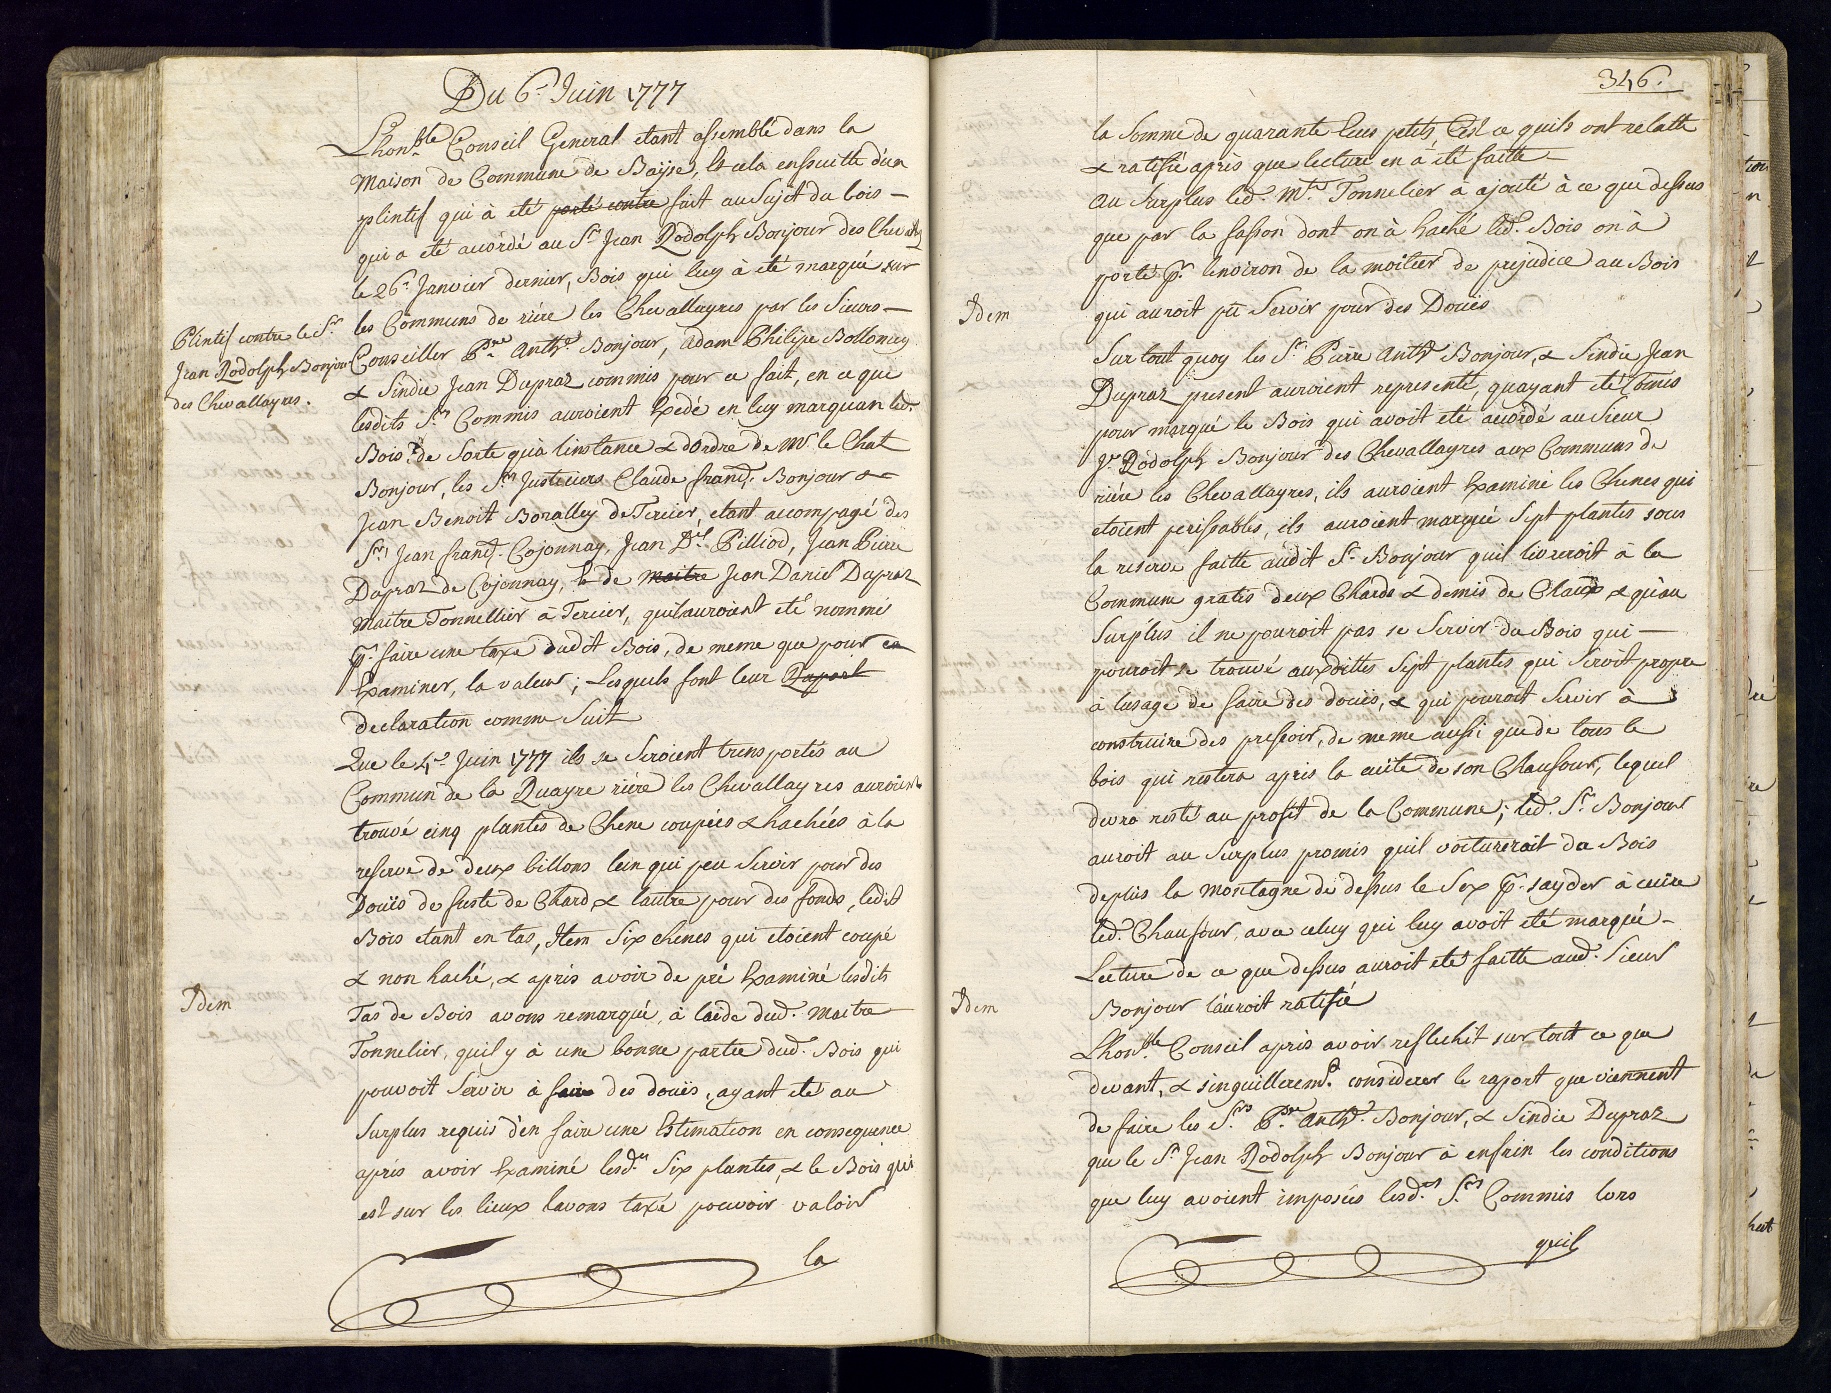 Du 6.e Juin 1777
Lhon.ble Conseil General etant assemblé dans la
Maison de Commune de Baÿse, & cela ensuitte d'un
plintif qui à eté porté contre fait au Sujet du bois
qui a eté accordé au S.r Jean Rodolph Bonjour des Chevall.
le 26.e Janvier dernier, Bois qui luy à eté marqué sur
les Communs de riére les Chevallayres par les Sieurs
Plintif contre le S.r
Jean Rodolph Bonjour
des Chevallayres.
Conseiller P.rre Anth.e Bonjour, Adam Philipe Bollomey
& Sindic Jean Dupraz commis pour ce fait, en ce que
lesdits S.rs Commis auroient Exedé en luy marquan led.
Bois; de Sorte qu'à linstance & dordre de M.r le Chat
Bonjour, les S.rs Justiciers Claude franç. Bonjour &
Jean Benoit Boralley de Tercier, etant accompagé des
S.rs Jean franç. Cojonnay, Jean D.l Pilliod, Jean Pierre
Dupraz de Cojonnay, & de Maitre Jean Daniel Dupraz
Maitre Tonnellier à Tercier, quil auroient eté nommé
p.r faire une taxe dudit Bois, de meme que pour en
Examiner, la valeur; Lesquels font leur Raport
declaration comme Suit
Que le 4.e Juin 1777 ils se Seroient transportés au
Commun de la Quayre riére les Chevallayres auroient
trouvé cinq plantes de Chene coupées & hachées à la
reserve de deux billons lein qui peu Servir pour des
Douïs de fuste de Chard & lautre pour des fonds, ledit
Bois etant en tas, Item Six chenes qui etoient coupé
& non haché, & après avoir de pré Examiné lesdits
Idem
Tas de Bois avons remarqué, à laide dud. Maitre
Tonnelier, quil y à une bonne partie dud. Bois qui
pouvoit Servir à faire des douïs, ayant eté au
Surplus requis d'en faire une Estimation en consequence
aprés avoir Examiné lesd.es Six plantes, & le Bois qui
est sur les lieux lavons taxé pouvoir valoir
la
346.
la Somme de quarante Ecus petits, C'est ce quils ont relatté
& ratifié après que lecture en à eté faitte
Au Surplus led. M.re Tonnelier a ajouté à ce que dessus
que par la fasson dont on à haché led. Bois on à
porté p.r lenviron de la moitier de prejudice au Bois
Idem
qui auroit pû Servir pour des Douïs
Sur tout quoy les S.rs Pierre Anth.e Bonjour, & Sindic Jean
Dupraz present auroient representé, quayant eté Comis
pour marqué le Bois qui avoit eté accordé au Sieur
J.n Rodolph Bonjour des Chevallayres aux Communs de
riére les Chevallayres, ils auroient Examiné les Chenes qui
etoient perissables, ils auroient marqué Sept plantes sous
la reserve faitte audit S.r Bonjour quil livreroit à la
Commune gratis deux Chards & demis de Chaux & qu'au
Surplus il ne pouroit pas se Servir du Bois qui
pouroit se trouvé auxdittes Sept plantes qui Seroit propre
à lusage de faire des douïs, & qui pouroit Servir à
construire des pressoir, de meme aussi que de tous le
bois qui restera après la cuite de son Chaufour, lequel
devra resté au profit de la Commune; led. S.r Bonjour
auroit au Surplus promis quil voitureroit du Bois
depuis la montagne de dessus le Sex p.r sayder à cuire
led. Chaufour, avec celuy qui luy avoit eté marqué
Lecture de ce que dessus auroit eté faitte aud. Sieur
Idem
Bonjour lauroit ratifié
Lhon.ble Conseil après avoir reflechit sur tout ce que
devant, & singuillerem.t considerer le raport que viennent
de faire les S.rs P.re Anth.e Bonjour, & Sindic Dupraz
que le S.r Jean Rodolph Bonjour à enfrin les conditions
que luy avoient imposés lesd.es S.rs Commis lors
quil